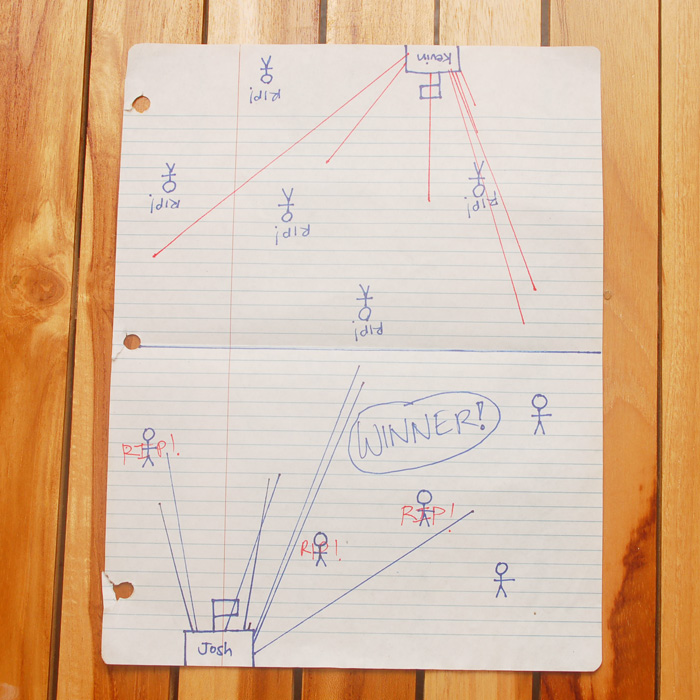 Kevin
RIP!
RIP!
RIP!
RIP!
RIP!
WINNER!
RIP!
RIP!
RIP!
Josh